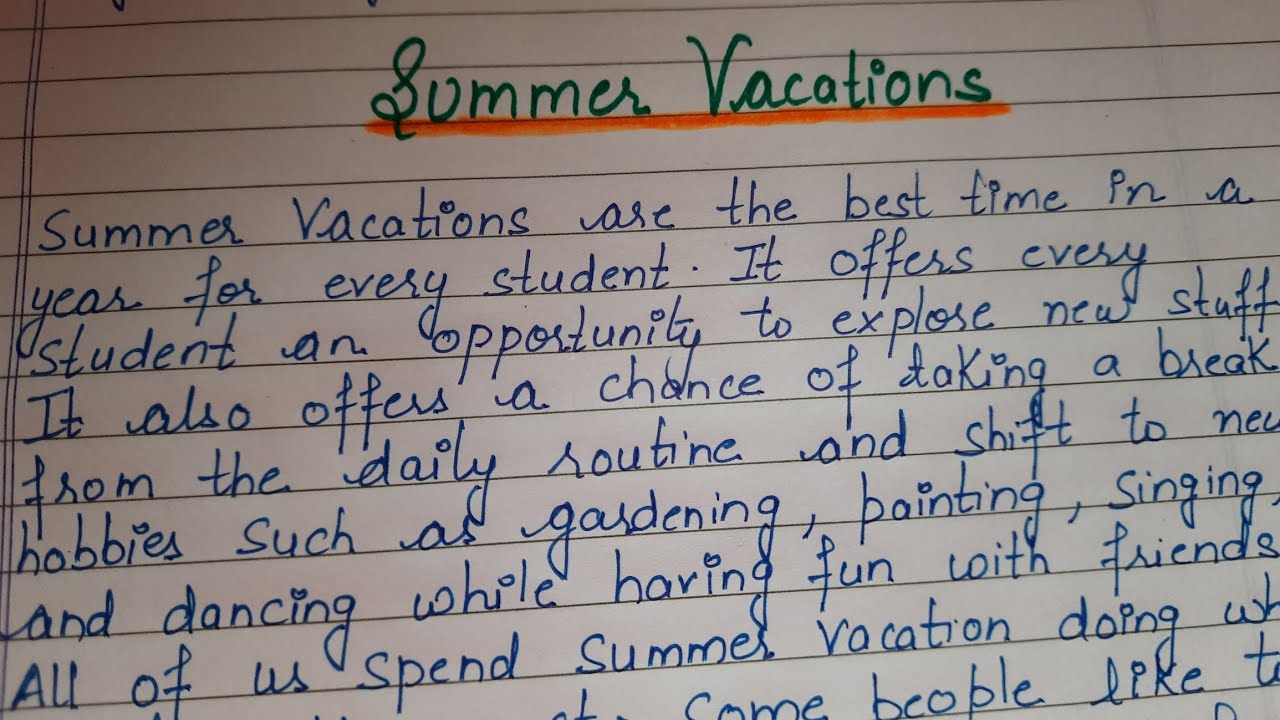 Summer Vacations
Summer Vacations are the best time in a
year for every student. It offers every
student an opportunity to explore new stuff
It also offers a chance of taking a break
from the daily routine and shift to new
hobbies such as gardening, painting, singing,
and dancing while having fun with friends.
All of us spend summer vacation doing
Some people like